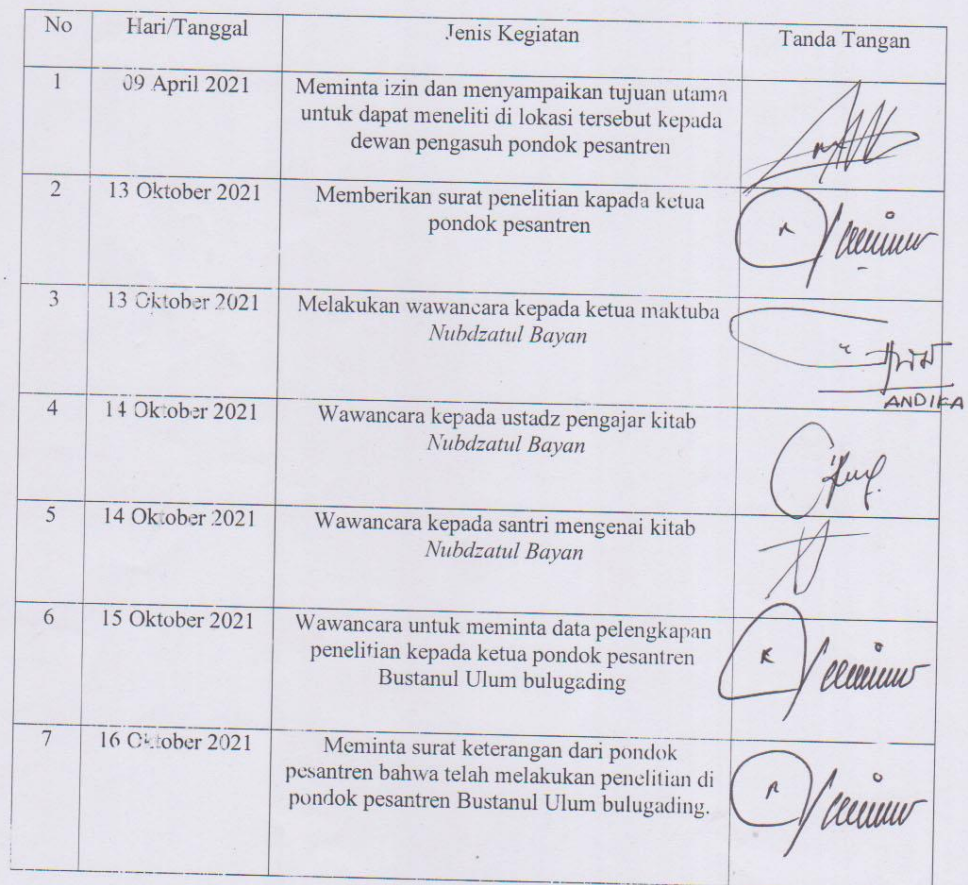 No Hari/Tanggal Jenis Kegiatan Tanda Tangan
1 09 April 2021 Meminta izin dan menyampaikan tujuan utama
untuk dapat meneliti di lokasi tersebut kepada
dewan pengasuh pondok pesantren
2 13 Oktober 2021 Memberikan surat penelitian kapada ketua
pondok pesantren
3 13 Oktober 2021 Melakukan wawancara kepada ketua maktuba
Nubdzatul Bayan
ANDIKA
4 14 Oktober 2021 Wawancara kepada ustadz pengajar kitab
Nubdzatul Bayan
5 14 Oktober 2021 Wawancara kepada santri mengenai kitab
Nubdzatul Bayan
6 15 Oktober 2021 Wawancara untuk meminta data pelengkapan
penelitian kepada ketua pondok pesantren
Bustanul Ulum bulugading
7 16 Oktober 2021 Meminta surat keterangan dari pondok
pesantren bahwa telah melakukan penelitian di
pondok pesantren Bustanul Ulum bulugading.